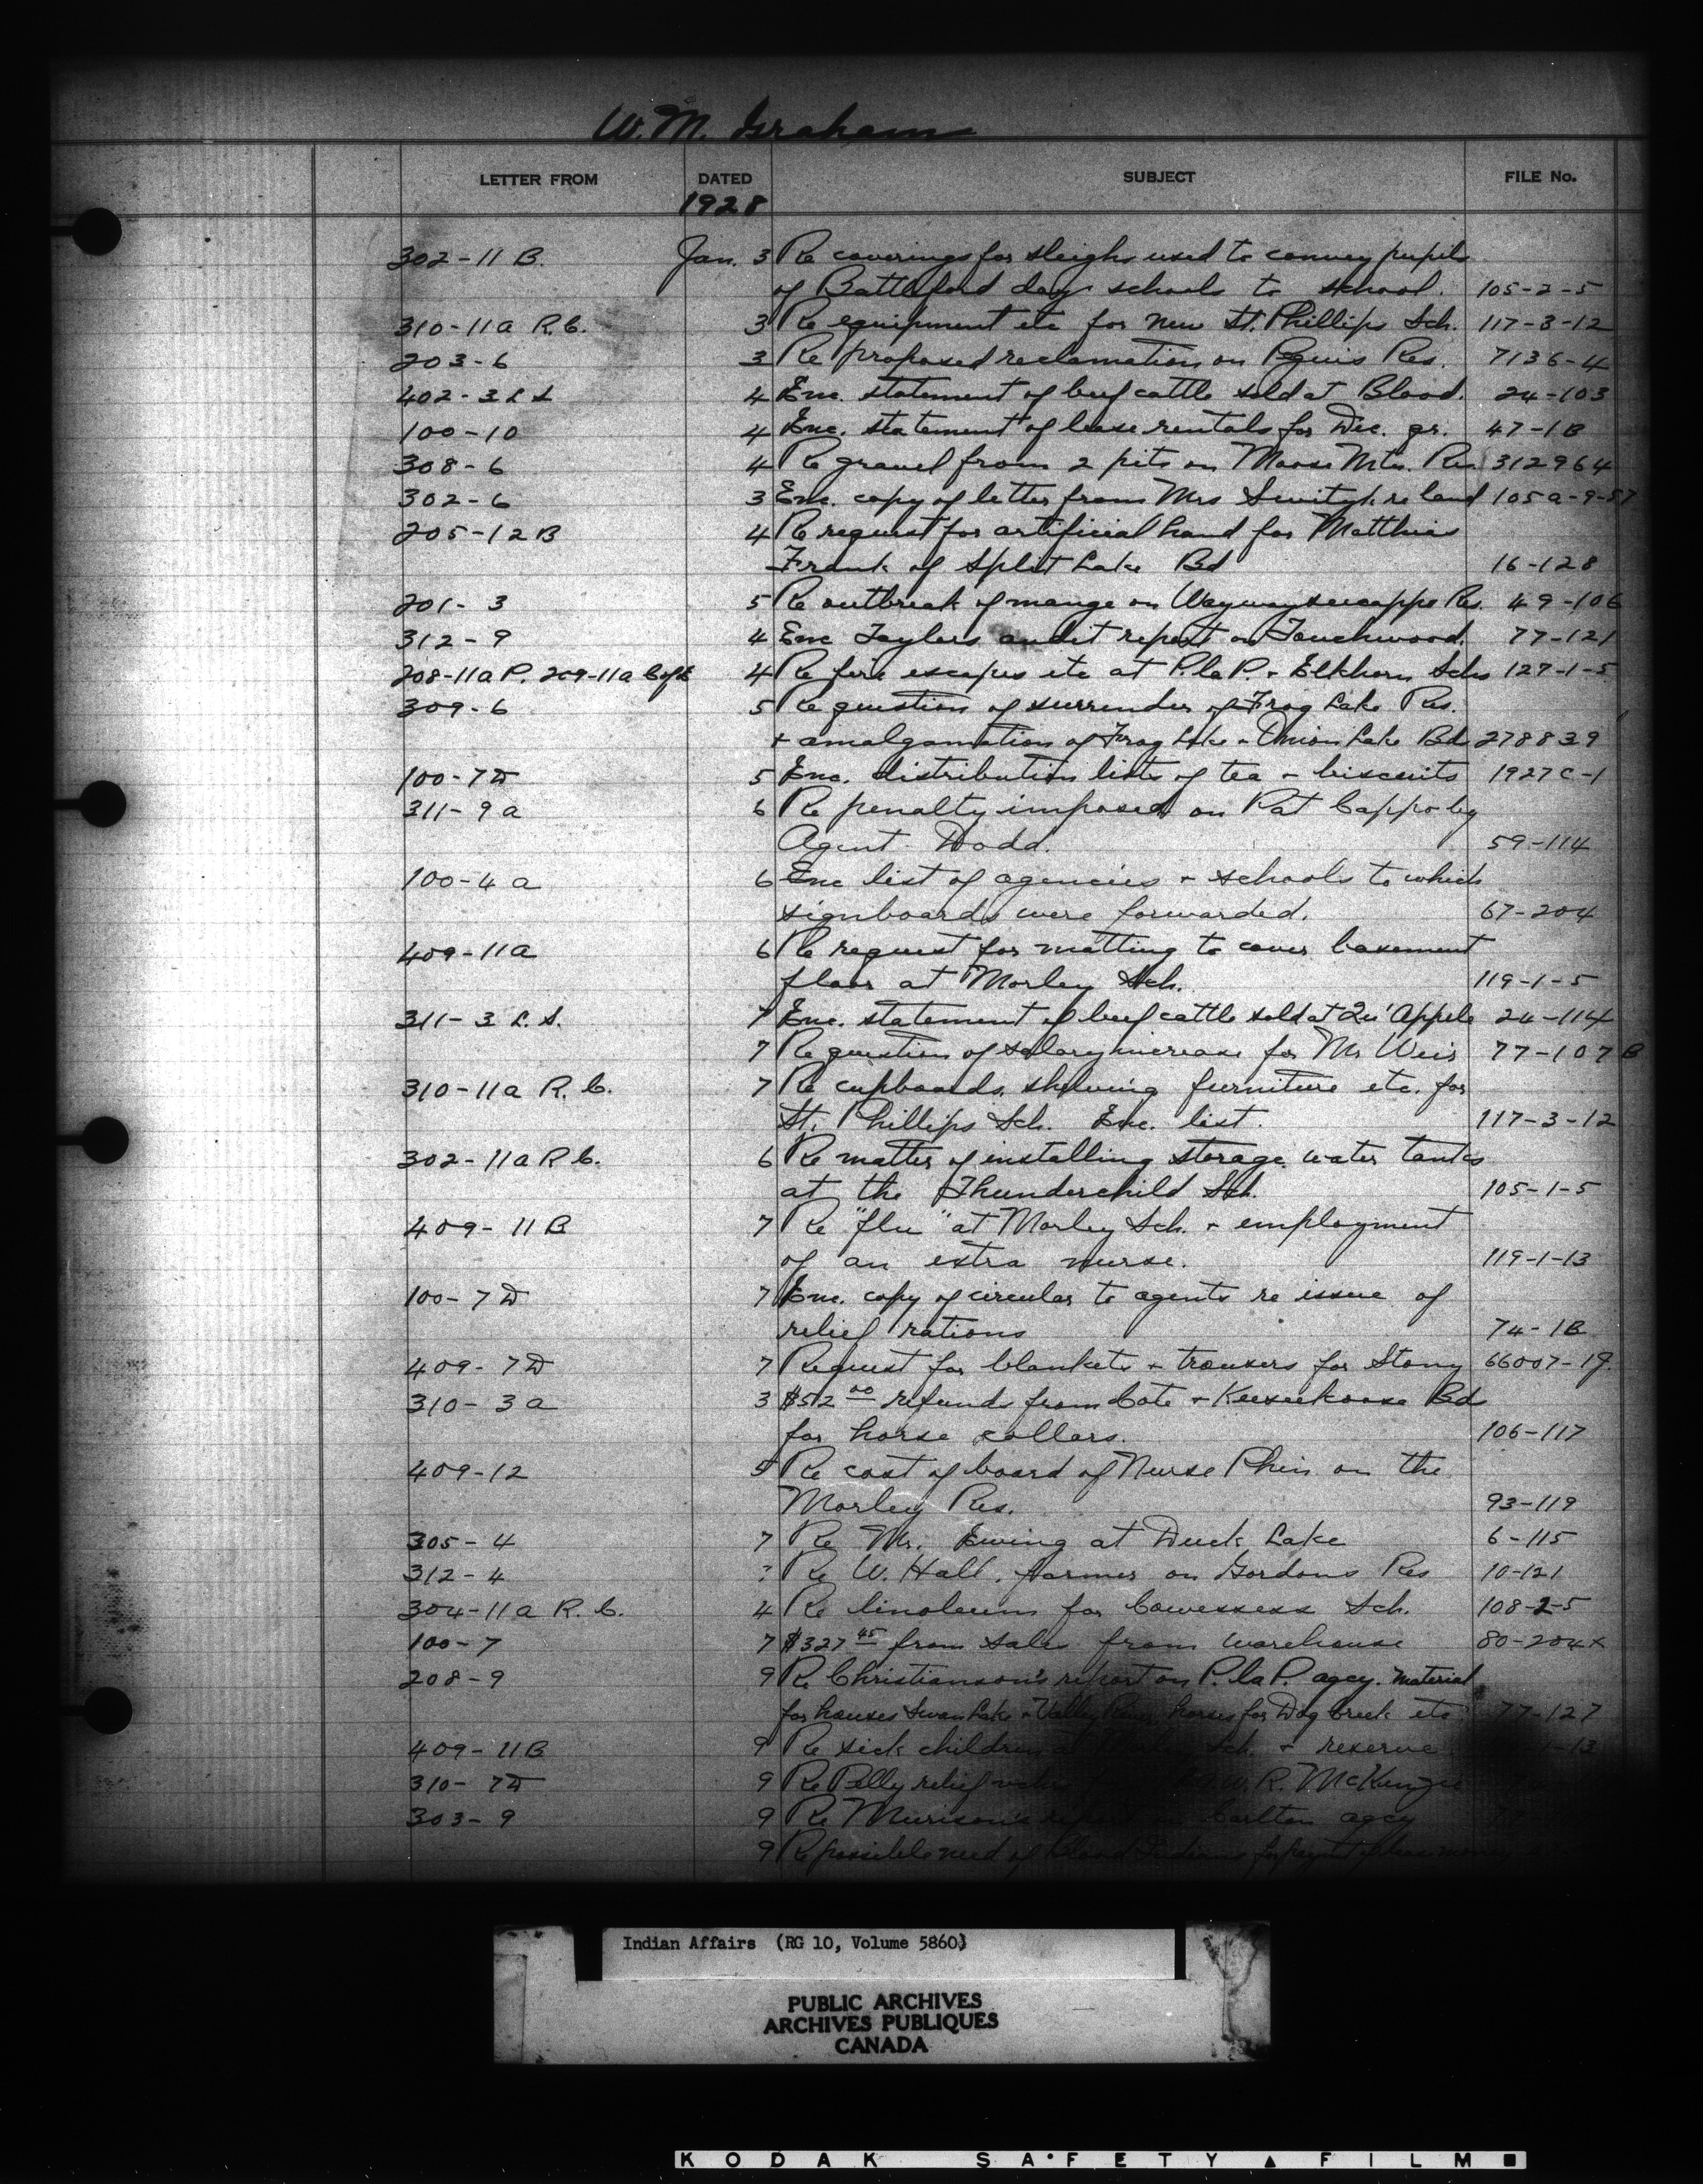 W. M. Graham
LETTER FROM DATED SUBJECT FILE No.
1928
302-11 B. Jan. 3 Re coverings for sleighs used to convey pupils
of Battleford day schools to school. 105-2-5
310-11a R.C. 3 Re equipment etc for new St. Phillips Sch. 117-3-12
203-6 3 Re proposed reclamation on Peguis Res. 7136-4
402-3 L S 4 Enc. statement of beef cattle sold at Blood. 24-103
100-10 4 Enc. statement of lease rentals for Dec. qr. 47-1B
308-6 4 Re gravel from 2 pits on Moose Mtn. Res. 312964
302-6 3 Enc. copy of letter from Mrs re land 105a-9-57
205-12 B 4 Re request for artificial hand for Matthias
Frank of Split Lake Bd 16-128
201-3 5 Re outbreak of mange on Waywayseecappo Res. 49-106
312-9 4 Enc Taylers audit report on Touchwood. 77-121
208-11a P. 209-11a C of E 4 Re fire escapes etc at P. la P. + Elkhorn Schs 127-1-5
309-6 5 Re question of surrender of Frog Lake Res.
+ amalgamation of Frog Lake + Onion Lake Bd 278839
100-7D 5 Enc. distribution lists of tea + biscuits 1927C-1
311-9a 6 Re penalty imposed on Pat Cappo by
Agent Dodd. 59-114
100-4a 6 Enc list of agencies + schools to which
signboards were forwarded. 67-204
409-11a 6 Re request for matting to cover basement
floor at Morley Sch. 119-1-5
311-3 L. S. 7 Enc. statement of beef cattle sold at Qu'Appelle 24-114
7 Re question of salary increase for Mr Weir 77-107B
310-11a R. C. 7 Re cupboards, shelving furniture etc. for
St. Phillips Sch. Enc. list. 117-3-12
302-11a R C. 6 Re matter of installing storage water tanks
at the Thunderchild Sch. 105-1-5
409-11B 7 Re "flu" at Morley Sch. + employment
of an extra nurse. 119-1-13
100-7D 7 Enc. copy of circular to agents re issue of
relief rations 74-1B
409-7D 7 Request for blankets + trousers for Stony 66007-19
310-3a 3 $512 00 refunds from Cote + Keeseekoose Bd
for horse collars. 106-117
409-12 5 Re cost of board of Nurse Phin on the
Morley Res. 93-119
305-4 7 Re Mr. Ewing at Duck Lake 6-115
312-4 7 Re W. Hall, farmer on Gordons Res 10-121
304-11a R. C. 4 Re linoleum for Cowessess Sch. 108-2-5
100-7 7 $327 45 from sales from warehouse 80-204x
208-9 9 Re Christianson's report on P. la P. agcy. material
for houses Swan Lake + Valley River horses for Dog Creek etc. 77-127
409-11B 9 Re sick children Sch. + reserve
310-7D 9 Re Pelly relief R. McKenzie
303-9 9 Re Murison's report Carlton agcy
9 Re possible need of Blood Indians for
Indian Affairs (RG 10, Volume 5860)
PUBLIC ARCHIVES
ARCHIVES PUBLIQUES
CANADA
KODAK SAFETY FILM